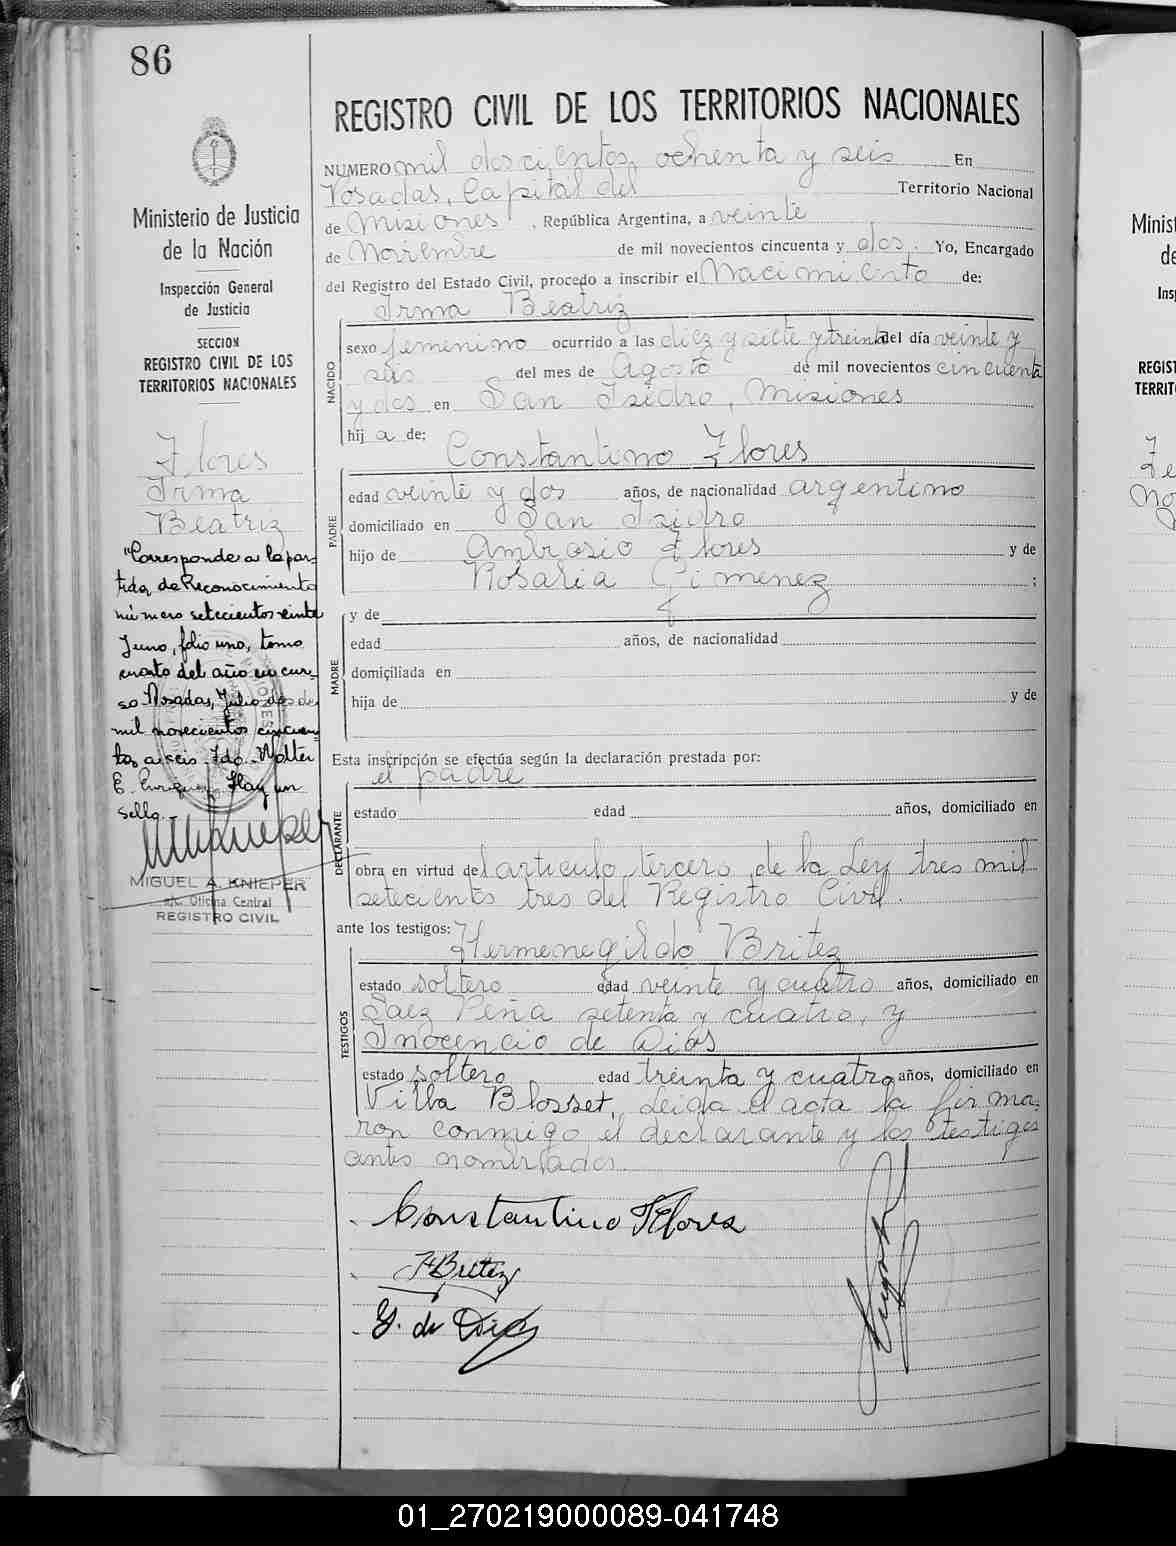 86
REGISTRO CIVIL DE LOS TERRITORIOS NACIONALES
NUMERO mil doscientos, ochenta y seis En
Posadas, Capital del Territorio Nacional
de Misiones, República Argentina, a veinte
de Noviembre de mil novecientos cincuenta y dos. Yo, Encargado
del Registro del Estado Civil, procedo a inscribir el Nacimiento de:
Irma Beatriz
NACIDO
sexo femenino ocurrido a las diez y siete y treinta del día veinte y
seis del mes de Agosto de mil novecientos cincuenta
y dos en San Isidro, Misiones
hij a de:
Constantino Flores
PADRE
edad veinte y dos años, de nacionalidad argentino
domiciliado en San Isidro
hijo de Ambrosio Flores y de
Rosalia Gimenez ;
MADRE
y de
edad años, de nacionalidad
domiciliada en
hija de y de
Esta inscripción se efectúa según la declaración prestada por:
el padre
DECLARANTE
estado edad años, domiciliado en
obra en virtud del articulo tercero de la Ley tres mil
setecientos tres del Registro Civil.
ante los testigos:
Hermenegildo Britez
TESTIGOS
estado soltero edad veinte y cuatro años, domiciliado en
Saez Peña setenta y cuatro, y
Inocencio de Dios
estado soltero edad treinta y cuatro años, domiciliado en
Villa Blosset, Leida el acta la firma-
ron conmigo el declarante y los testigos
antes nombrados.
Constantino Flores
H Britez
Y. de Dios
Ministerio de Justicia
de la Nación
Inspección General
de Justicia
SECCION
REGISTRO CIVIL DE LOS
TERRITORIOS NACIONALES
Flores
Irma
Beatriz
"Corresponde a la par-
tida de Reconocimiento
número setecientos veinte
y uno, folio uno, tomo
cuarto del año en cur-
so Posadas, Julio dos de
mil novecientos cincuen-
ta y seis. Fdo. Walter
E. Hay un
sello.-
MIGUEL A. KNIEPER
a/c. Oficina Central
REGISTRO CIVIL
Minist
de
Insp
REGIST
TERRIT
01_270219000089-041748